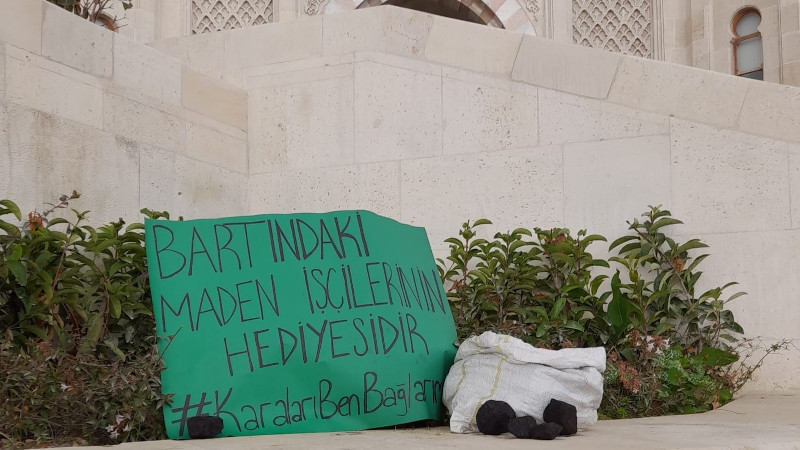 BARTINDAKİ
MADEN İŞÇİLERİNİN
HEDİYESİDİR
#KaralarıBenBağlarım